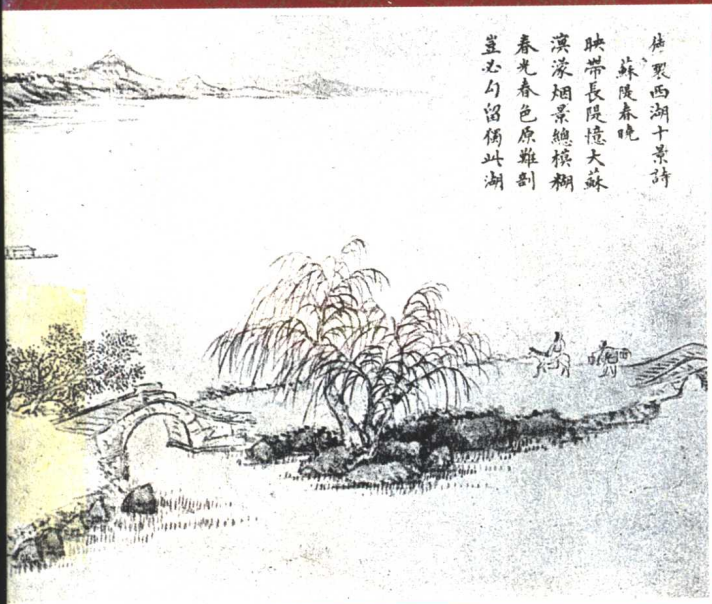 西湖十景詩
蘇隄春曉
映帶長隄憶大蘇
溟濛烟景總模糊
春光春色原難剖
豈必勾留獨此湖